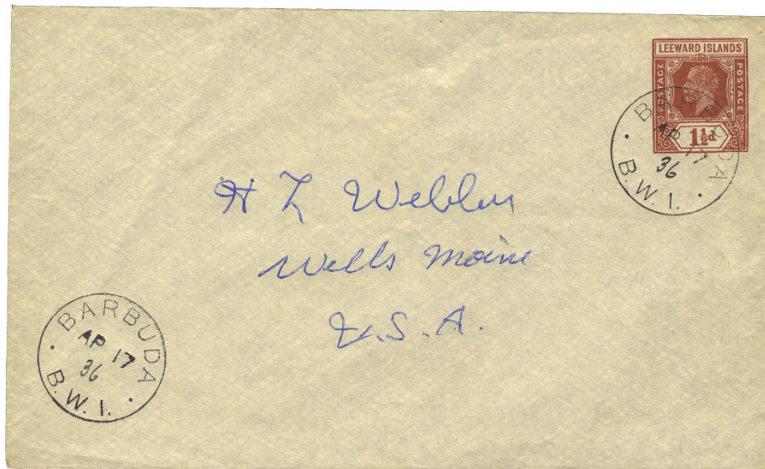 LEEWARD ISLANDS
POSTAGE POSTAGE
1½d
BARBUDA
AP 17
36
B.W.I.
H L Webber
Wells Maine
U.S.A.
BARBUDA
AP 17
36
B.W.I.